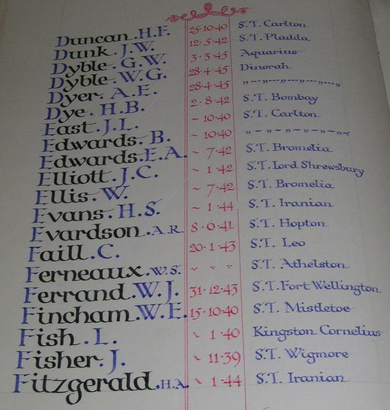 Duncan. H.F. 25·10·40 S.T. Carlton
Dunk. J.W. 12·5·42 S.T. Pladda
Dyble. G.W. 3·3·45 Aquarius
Dyble. W.G. 28·4·45 Dinorah
Dyer. A.E. 28·4·45 " " " " "
Dye. H.B. 2·8·42 S.T. Bombay
East. J.L. ~ 10·40 S.T. Carlton
Edwards. B. ~ 10·40 " " " " "
Edwards. E.A. ~ 7·42 S.T. Bromelia
Elliott. J.C. ~ 1·42 S.T. Lord Shrewsbury
Ellis. W. ~ 7·42 S.T. Bromelia
Evans. H.S. ~ 1·44 S.T. Iranian
Evardson. A.R. 8·6·41 S.T. Hopton
Faill. C. 20·1·43 S.T. Leo
Ferneaux. W.S. " " " S.T. Athelston
Ferrand. W.J. 31·12·43 S.T. Fort Wellington
Fincham. W.E. 15·10·40 S.T. Mistletoe
Fish. L. ~ 1·40 Kingston Cornelius
Fisher. J. ~ 11·39 S.T. Wigmore
Fitzgerald. H.A. ~ 1·44 S.T. Iranian